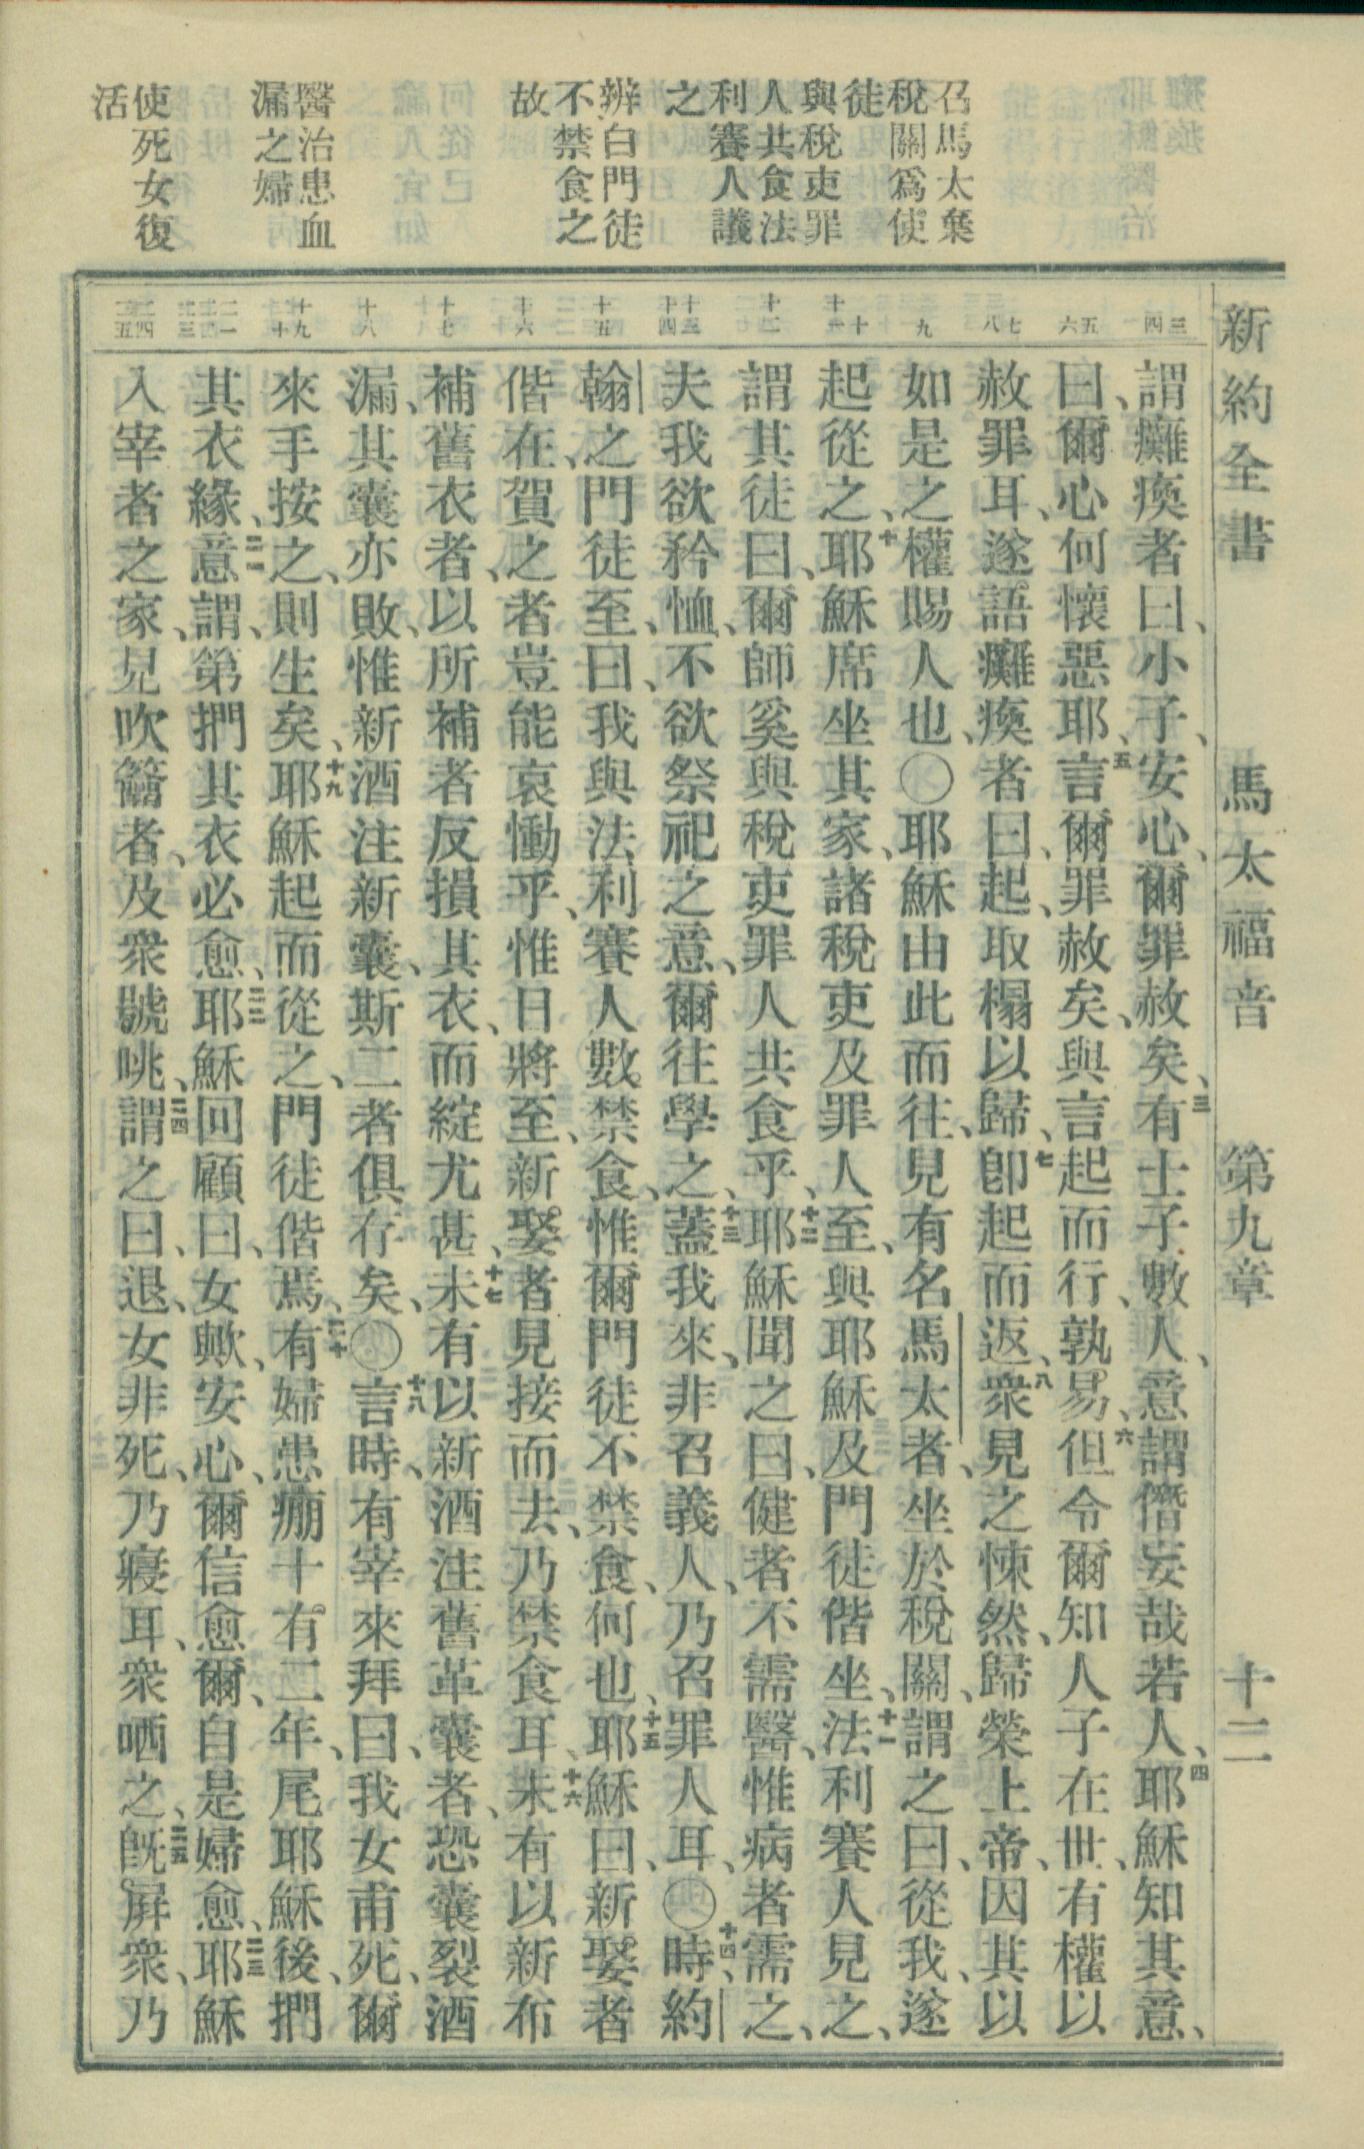 新約全書 馬太福音 第九章 十二
召馬太棄
稅關爲使
徒
與稅吏罪
人共食法
利賽人議
之
辨白門徒
不禁食之
故
醫治患血
漏之婦
使死女復
活
謂癱瘓者曰、小子、安心、爾罪赦矣、三有士子數人、意謂僭妄哉若人、四耶穌知其意、
曰、爾心何懷惡耶、五言爾罪赦矣、與言起而行、孰易、六但令爾知人子在世、有權以
赦罪耳、遂語癱瘓者曰、起、取榻以歸、七卽起而返、八衆見之悚然、歸榮上帝、因其以
如是之權賜人也、〇耶穌由此而往、見有名馬太者、坐於稅關、謂之曰、從我、遂
起從之、十耶穌席坐其家、諸稅吏及罪人至、與耶穌及門徒偕坐、十一法利賽人見之、
謂其徒曰、爾師奚與稅吏罪人共食乎、十二耶穌聞之曰、健者不需醫、惟病者需之、
夫我欲矜恤、不欲祭祀之意、爾往學之、十三蓋我來、非召義人、乃召罪人耳、〇十四時、約
翰之門徒至、曰、我與法利賽人數禁食、惟爾門徒不禁食、何也、十五耶穌曰、新娶者
偕在、賀之者豈能哀慟乎、惟日將至、新娶者見接而去、乃禁食耳、十六未有以新布
補舊衣者、以所補者反損其衣、而綻尤甚、十七未有以新酒注舊革囊者、恐囊裂酒
漏、其囊亦敗、惟新酒注新囊、斯二者俱存矣、〇十八言時、有宰來拜曰、我女甫死、爾
來手按之、則生矣、十九耶穌起而從之、門徒偕焉、二十有婦患痳十有二年、尾耶穌後、捫
其衣緣、二一意謂、第捫其衣必愈、二二耶穌回顧曰、女歟、安心、爾信愈爾、自是婦愈、二三耶穌
入宰者之家、見吹籥者、及衆號咷、二四謂之曰、退、女非死、乃寢耳、衆哂之、二五旣屛衆、乃